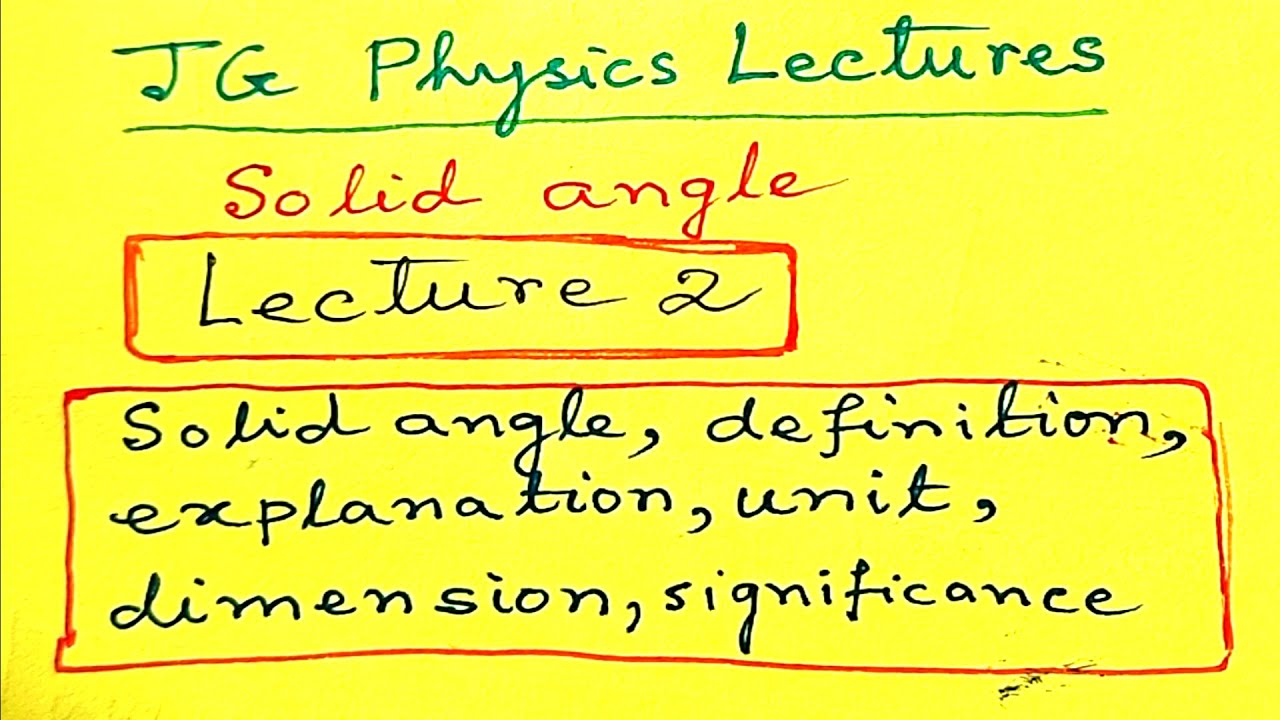 JG Physics Lectures
Solid angle
Lecture 2
Solid angle, definition,
explanation, unit,
dimension, significance